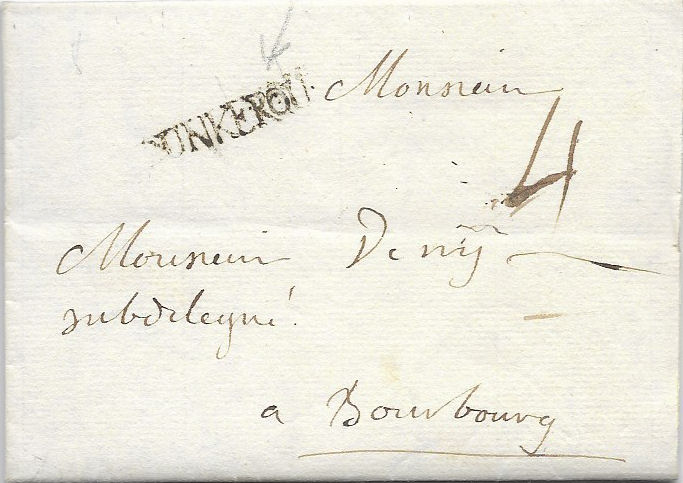 DUNKERQU
Monsieur
4
Monsieur De nÿ
subdelegué.
a Bourbourg